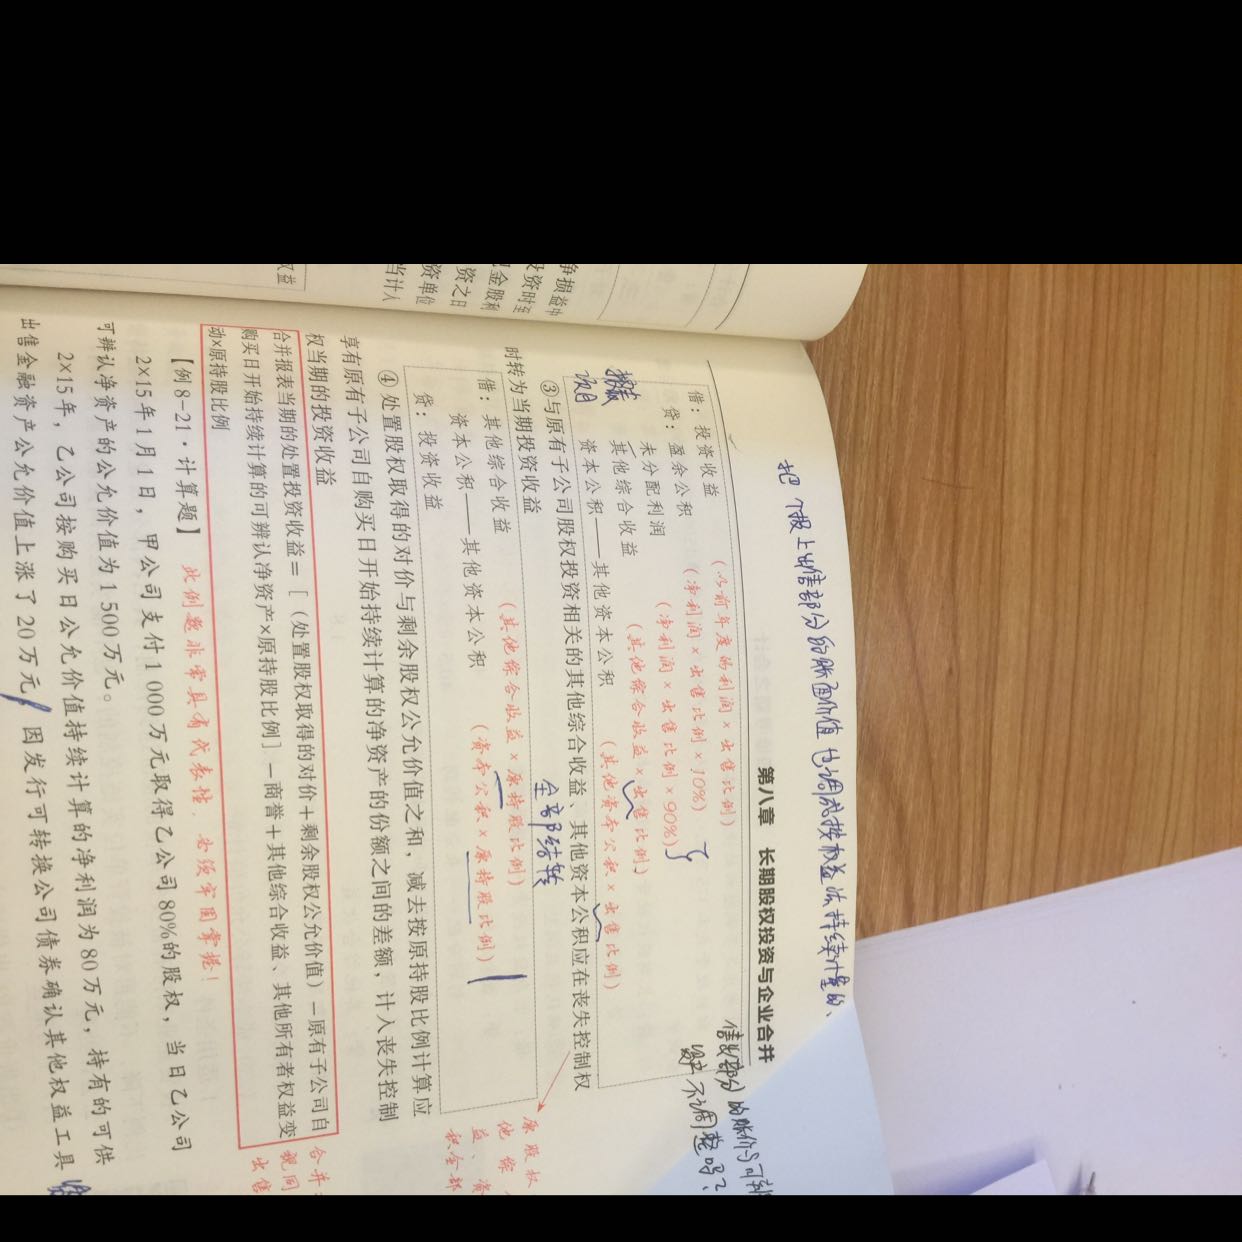 把个报上出售部分的账面价值也调成按权益法持续计量的、
第八章 长期股权投资与企业合并
售出部分的账价与可辨
不调整吗？
借：投资收益 （以前年度的利润×出售比例）
贷：盈余公积 （净利润×出售比例×10%）
未分配利润 （净利润×出售比例×90%）
其他综合收益 （其他综合收益×出售比例）
资本公积——其他资本公积 （其他资本公积×出售比例）
项目
③与原有子公司股权投资相关的其他综合收益、其他资本公积应在丧失控制权
时转为当期投资收益
全部结转
借：其他综合收益 （其他综合收益×原持股比例）
资本公积——其他资本公积 （资本公积×原持股比例）
贷：投资收益
④处置股权取得的对价与剩余股权公允价值之和，减去按原持股比例计算应
享有原有子公司自购买日开始持续计算的净资产的份额之间的差额，计入丧失控制
权当期的投资收益
合并报表当期的处置投资收益＝［（处置股权取得的对价＋剩余股权公允价值）－原有子公司自
购买日开始持续计算的可辨认净资产×原持股比例］－商誉＋其他综合收益、其他所有者权益变
动×原持股比例
【例8-21·计算题】 此例数非常具有代表性，必须牢固掌握！
2×15年1月1日，甲公司支付1 000万元取得乙公司80%的股权，当日乙公司
可辨认净资产的公允价值为1 500万元。
2×15年，乙公司按购买日公允价值持续计算的净利润为80万元，持有的可供
出售金融资产公允价值上涨了20万元，因发行可转换公司债券确认其他权益工具
原股权
他综
益、资
积全部
合并
视同
出售
净损益中
投资时至
金股利
资之日
资单位
当计入
权益